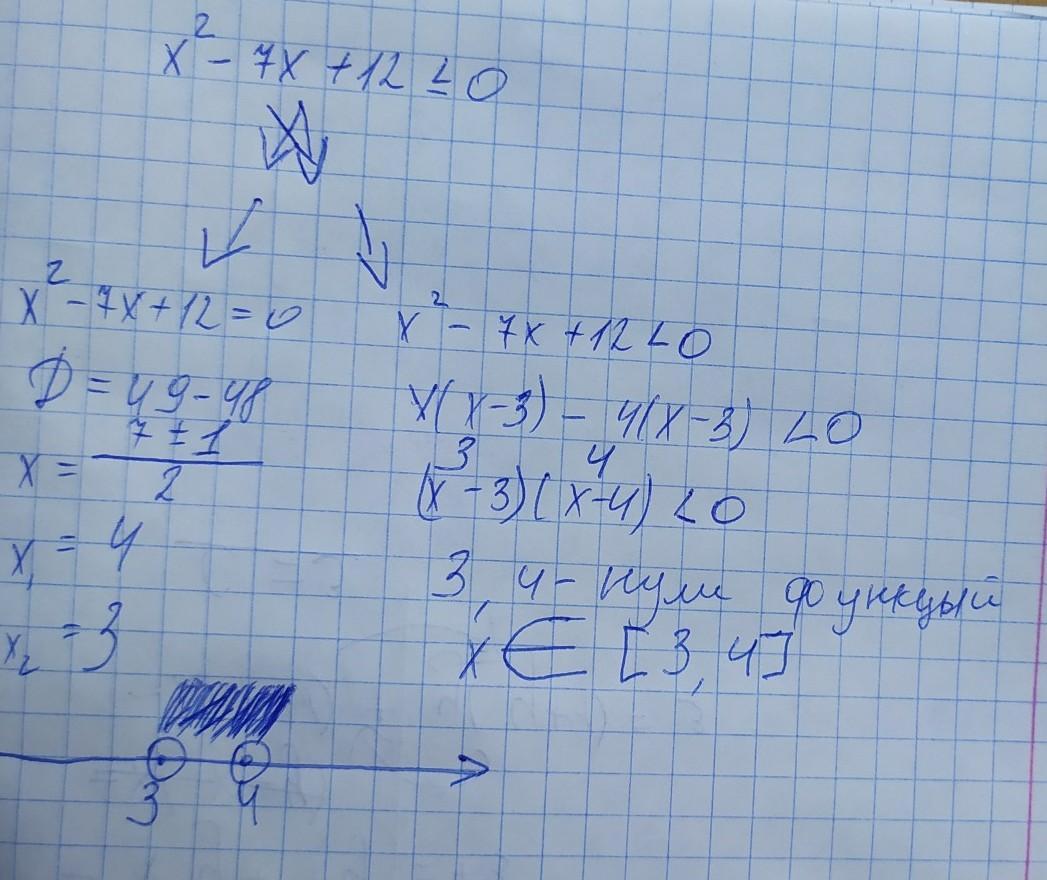 x² - 7x + 12 ≤ 0
x² - 7x + 12 = 0
D = 49 - 48
x = (7 ± 1) / 2
x₁ = 4
x₂ = 3
x² - 7x + 12 < 0
x(x-3) - 4(x-3) < 0
3 4
(x-3)(x-4) < 0
3, 4 - нули функцый
x ∈ [3, 4]
3 4